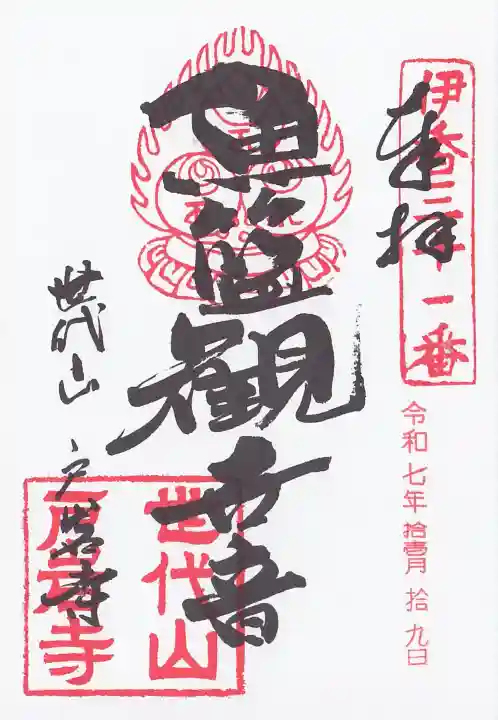 伊香三十一番
奉拝
令和七年拾壹月拾九日
魚籃観世音
世代山 戸岩寺
世代山
戸岩寺